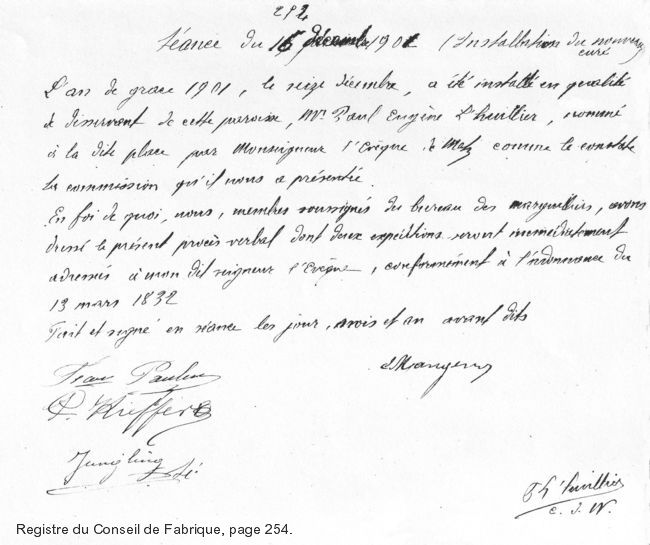 Séance du 16 décembre 1901 (Installation du nouveau
curé)
L'an de grace 1901, le seize décembre, a été installé en qualité
de desservant de cette paroisse, Mr Paul Eugène L'huillier, nommé
à la dite place par Monseigneur l'Evêque de Metz comme le constate
la commission qu'il nous a présentée.
En foi de quoi, nous, membres soussignés du bureau des marguilliers, avons
dressé le présent procès verbal dont deux expéditions seront immédiatement
adressés à mon dit seigneur l'Evêque, conformément à l'ordonnance du
13 mars 1832
Fait et signé en séance les jour, mois et an avant dits
Mangenot
Jean Paulus
P. Kieffer
Jungling
Lhuillier
c. J. W.
Registre du Conseil de Fabrique, page 254.